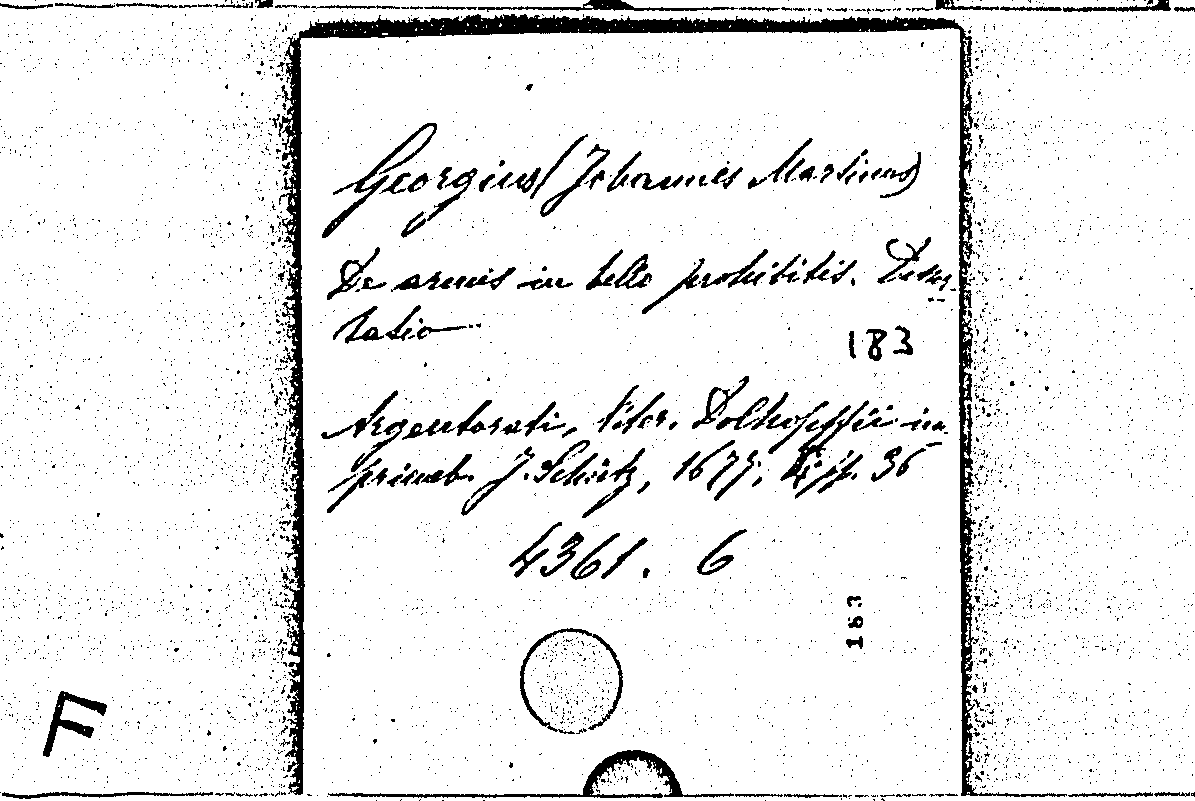 Georgius (Johannes Martinus)
De armis in bello prohibitis. Disser-
tatio
183
Argentorati, liter. Dolhopffii im-
primeb. J. Schütz, 1677. pp. 36
4361. 6
183
F